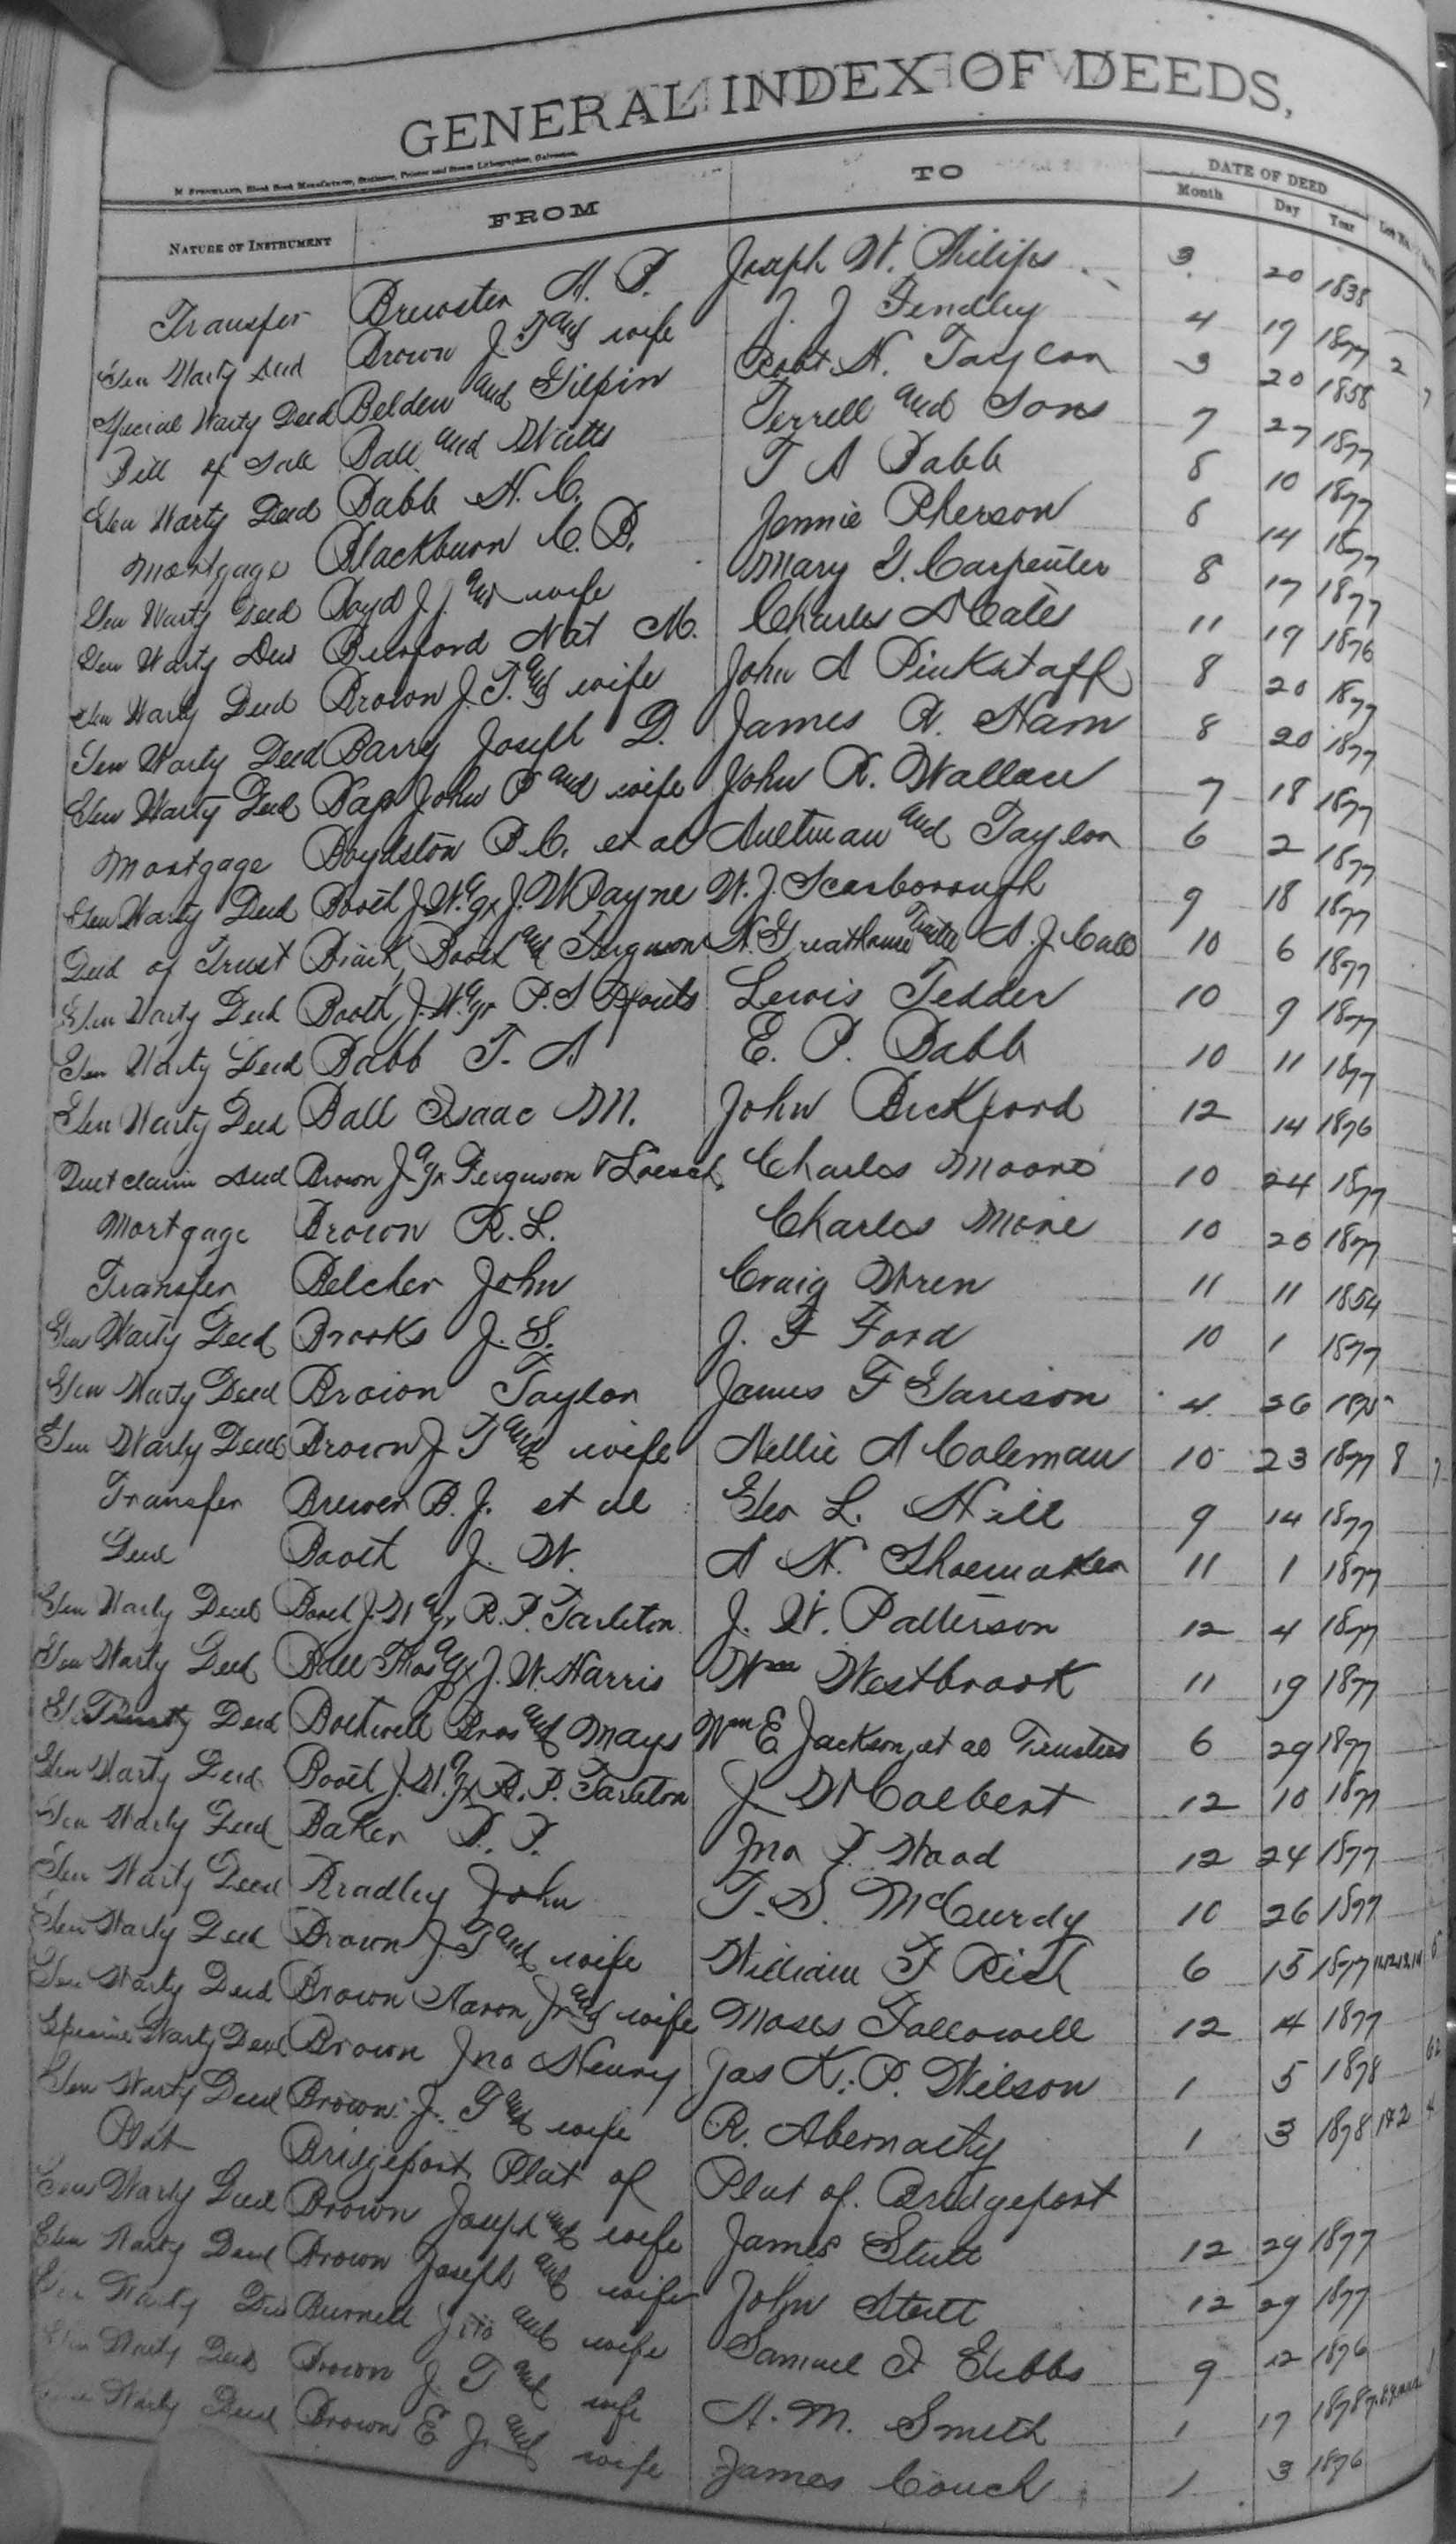 GENERAL INDEX OF DEEDS,
NATURE OF INSTRUMENT FROM TO DATE OF DEED
Month Day Year Lot No.
Transfer Brewster H. P. Joseph W. Philips 3 20 1838
Gen Warty Deed Brown J. T and wife J. J Fendley 4 19 1877 2 7
Special Warty Deed Belden and Gilpin Robt. H. Taylor 3 20 1858
Bill of Sale Ball and Watts Terrell and Sons 7 27 1877
Gen Warty Deed Babb H. C. T A Babb 8 10 1877
Mortgage Blackburn C. B. Jennie Pherson 8 14 1877
Gen Warty Deed Boyd J. J. and wife Mary G. Carpenter 8 17 1877
Gen Warty Deed Burford Nat M. Charles A Cates 11 19 1876
Gen Warty Deed Brown J. T. and wife John A Pinkstaff 8 20 1877
Gen Warty Deed Barry Joseph D. James R. Ham 8 20 1877
Gen Warty Deed John P and wife John R. Wallace 7 18 1877
Mortgage Boydston B. C. et al Aultman and Taylor 6 2 1877
Gen Warty Deed Booth J. W. J. W Payne W. J. Scarborough 9 18 1877
Deed of Trust Booth and Ferguson H. Greathouse A. J. 10 6 1877
Gen Warty Deed Booth, J. W. P. S Pfouts Lewis Tedder 10 9 1877
Gen Warty Deed Babb T. A E. P. Babb 10 11 1877
Gen Warty Deed Ball Isaac M. John Bickford 12 14 1876
Quit claim Deed Brown J. Ferguson & Charles Moore 10 24 1877
Mortgage Brown R. L. Charles More 10 20 1877
Transfer Belcher John Craig Wren 11 11 1854
Gen Warty Deed Brooks J. S. J. F Ford 10 1 1877
Gen Warty Deed Brown Taylor James F Garison 4 26 1875
Gen Warty Deed Brown J. T and wife Nellie A Coleman 10 23 1877 8 7
Transfer Brewer B. J. et al Geo L. Hill 9 14 1877
Deed Booth J. W. A H. Shoemaker 11 1 1877
Gen Warty Deed Booth J. W R. P. Tarleton J. W. Patterson 12 4 1877
Gen Warty Deed Ball Thos J. W. Harris Wm Westbrook 11 19 1877
Deed Boutwell Bros and Mays Wm E Jackson, et al Trustees 6 29 1877
Gen Warty Deed Booth J. W. R. P. Tarleton J W Colbert 12 10 1877
Gen Warty Deed Baker Jno Wood 12 24 1877
Gen Warty Deed Bradley John T. S. McCurdy 10 26 1877
Gen Warty Deed Brown J. T and wife William F Rich 6 15 1877
Gen Warty Deed Brown Aaron Jr and wife Moses Fallowell 12 4 1877
Special Warty Deed Brown Jno Henry Jas K. P. Wilson 1 5 1878
Gen Warty Deed Brown J. T and wife R. Abernathy 1 3 1878 1&2 4
Plat Bridgeport, Plat of Plat of Bridgeport
Gen Warty Deed Brown Joseph and wife James Stutt 12 29 1877
Gen Warty Deed Brown Joseph and wife John Stutt 12 29 1877
Gen Warty Deed Burnett Jno and wife Samuel Gibbs 9 12 1876
Gen Warty Deed Brown J. T and wife A. M. Smith 1 17 1878
Gen Warty Deed Brown E J. and wife James Couch 1 3 1876